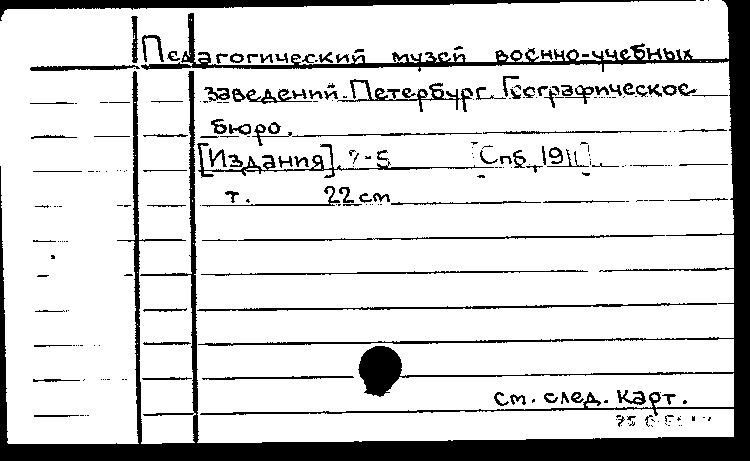 Педагогический музей военно-учебных
заведений. Петербург. Географическое
бюро.
[Издания]. ?-5 [Спб, 1911].
т. 22 cm
см. след. карт.